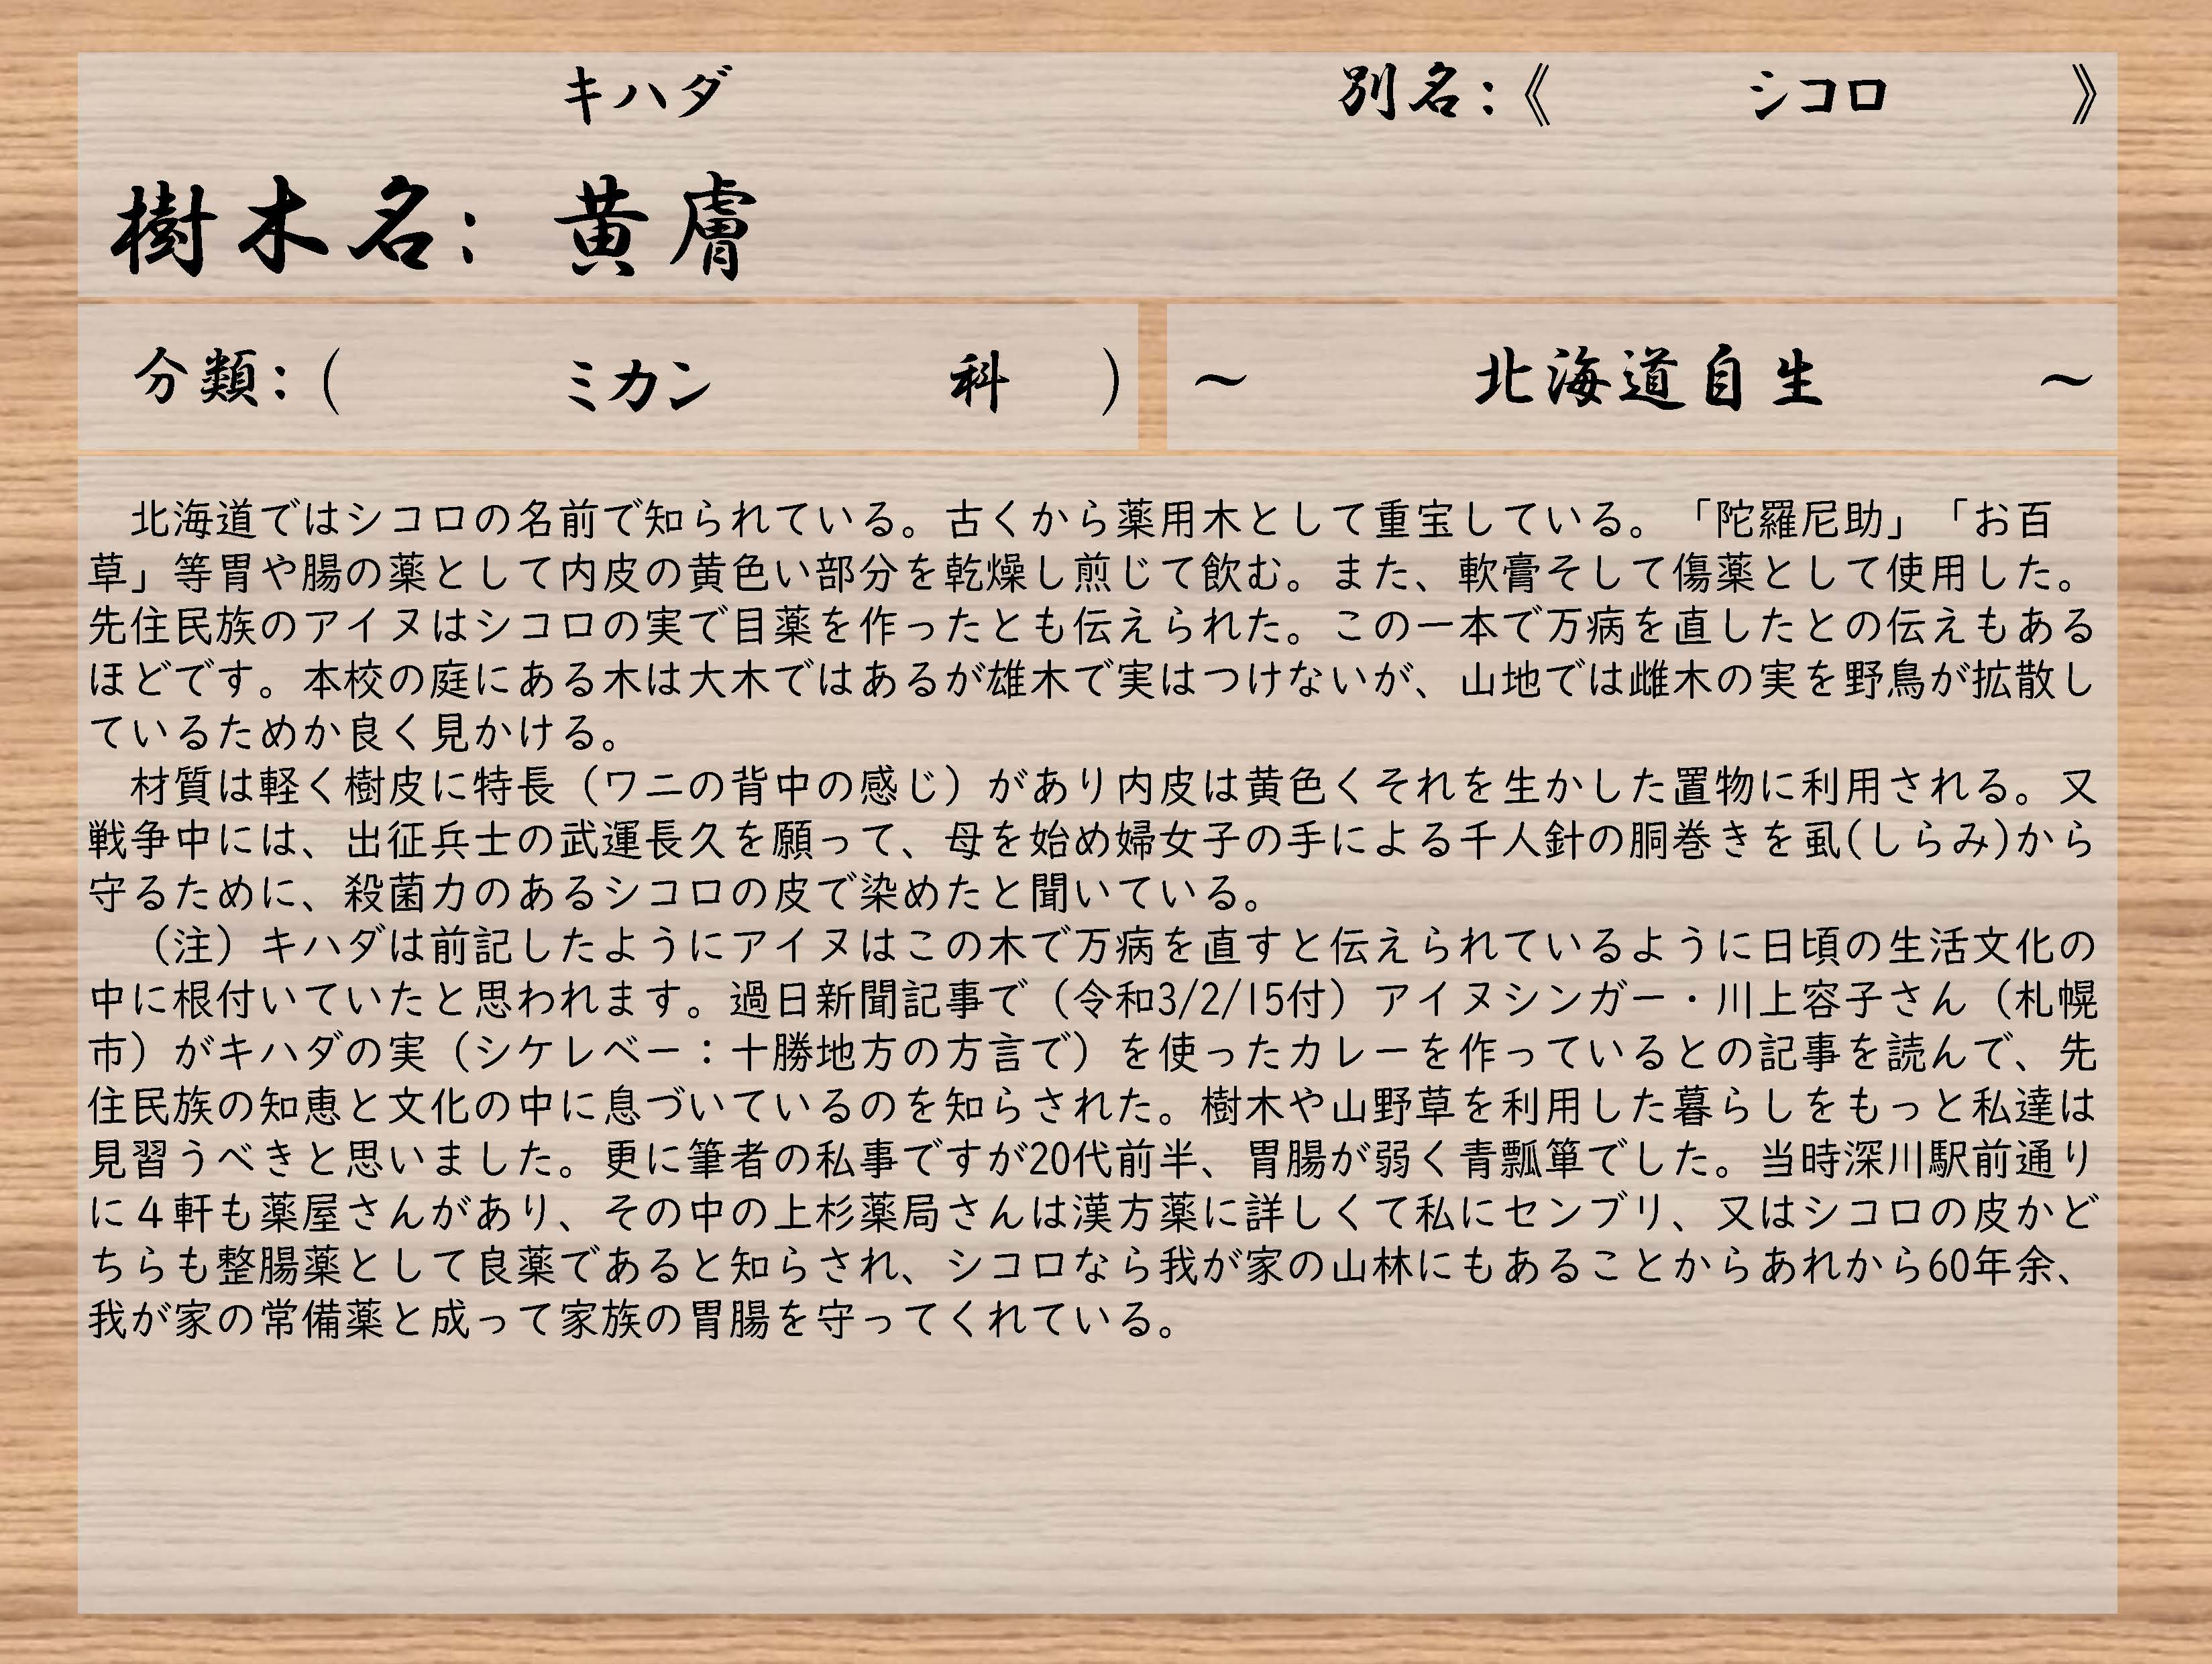 キハダ　別名：《　シコロ　》
樹木名：黄膚
分類：（　ミカン　科　）　～　北海道自生　～
　北海道ではシコロの名前で知られている。古くから薬用木として重宝している。「陀羅尼助」「お百
草」等胃や腸の薬として内皮の黄色い部分を乾燥し煎じて飲む。また、軟膏そして傷薬として使用した。
先住民族のアイヌはシコロの実で目薬を作ったとも伝えられた。この一本で万病を直したとの伝えもある
ほどです。本校の庭にある木は大木ではあるが雄木で実はつけないが、山地では雌木の実を野鳥が拡散し
ているためか良く見かける。
　材質は軽く樹皮に特長（ワニの背中の感じ）があり内皮は黄色くそれを生かした置物に利用される。又
戦争中には、出征兵士の武運長久を願って、母を始め婦女子の手による千人針の胴巻きを虱(しらみ)から
守るために、殺菌力のあるシコロの皮で染めたと聞いている。
　（注）キハダは前記したようにアイヌはこの木で万病を直すと伝えられているように日頃の生活文化の
中に根付いていたと思われます。過日新聞記事で（令和3/2/15付）アイヌシンガー・川上容子さん（札幌
市）がキハダの実（シケレベー：十勝地方の方言で）を使ったカレーを作っているとの記事を読んで、先
住民族の知恵と文化の中に息づいているのを知らされた。樹木や山野草を利用した暮らしをもっと私達は
見習うべきと思いました。更に筆者の私事ですが20代前半、胃腸が弱く青瓢箪でした。当時深川駅前通り
に４軒も薬屋さんがあり、その中の上杉薬局さんは漢方薬に詳しくて私にセンブリ、又はシコロの皮かど
ちらも整腸薬として良薬であると知らされ、シコロなら我が家の山林にもあることからあれから60年余、
我が家の常備薬と成って家族の胃腸を守ってくれている。